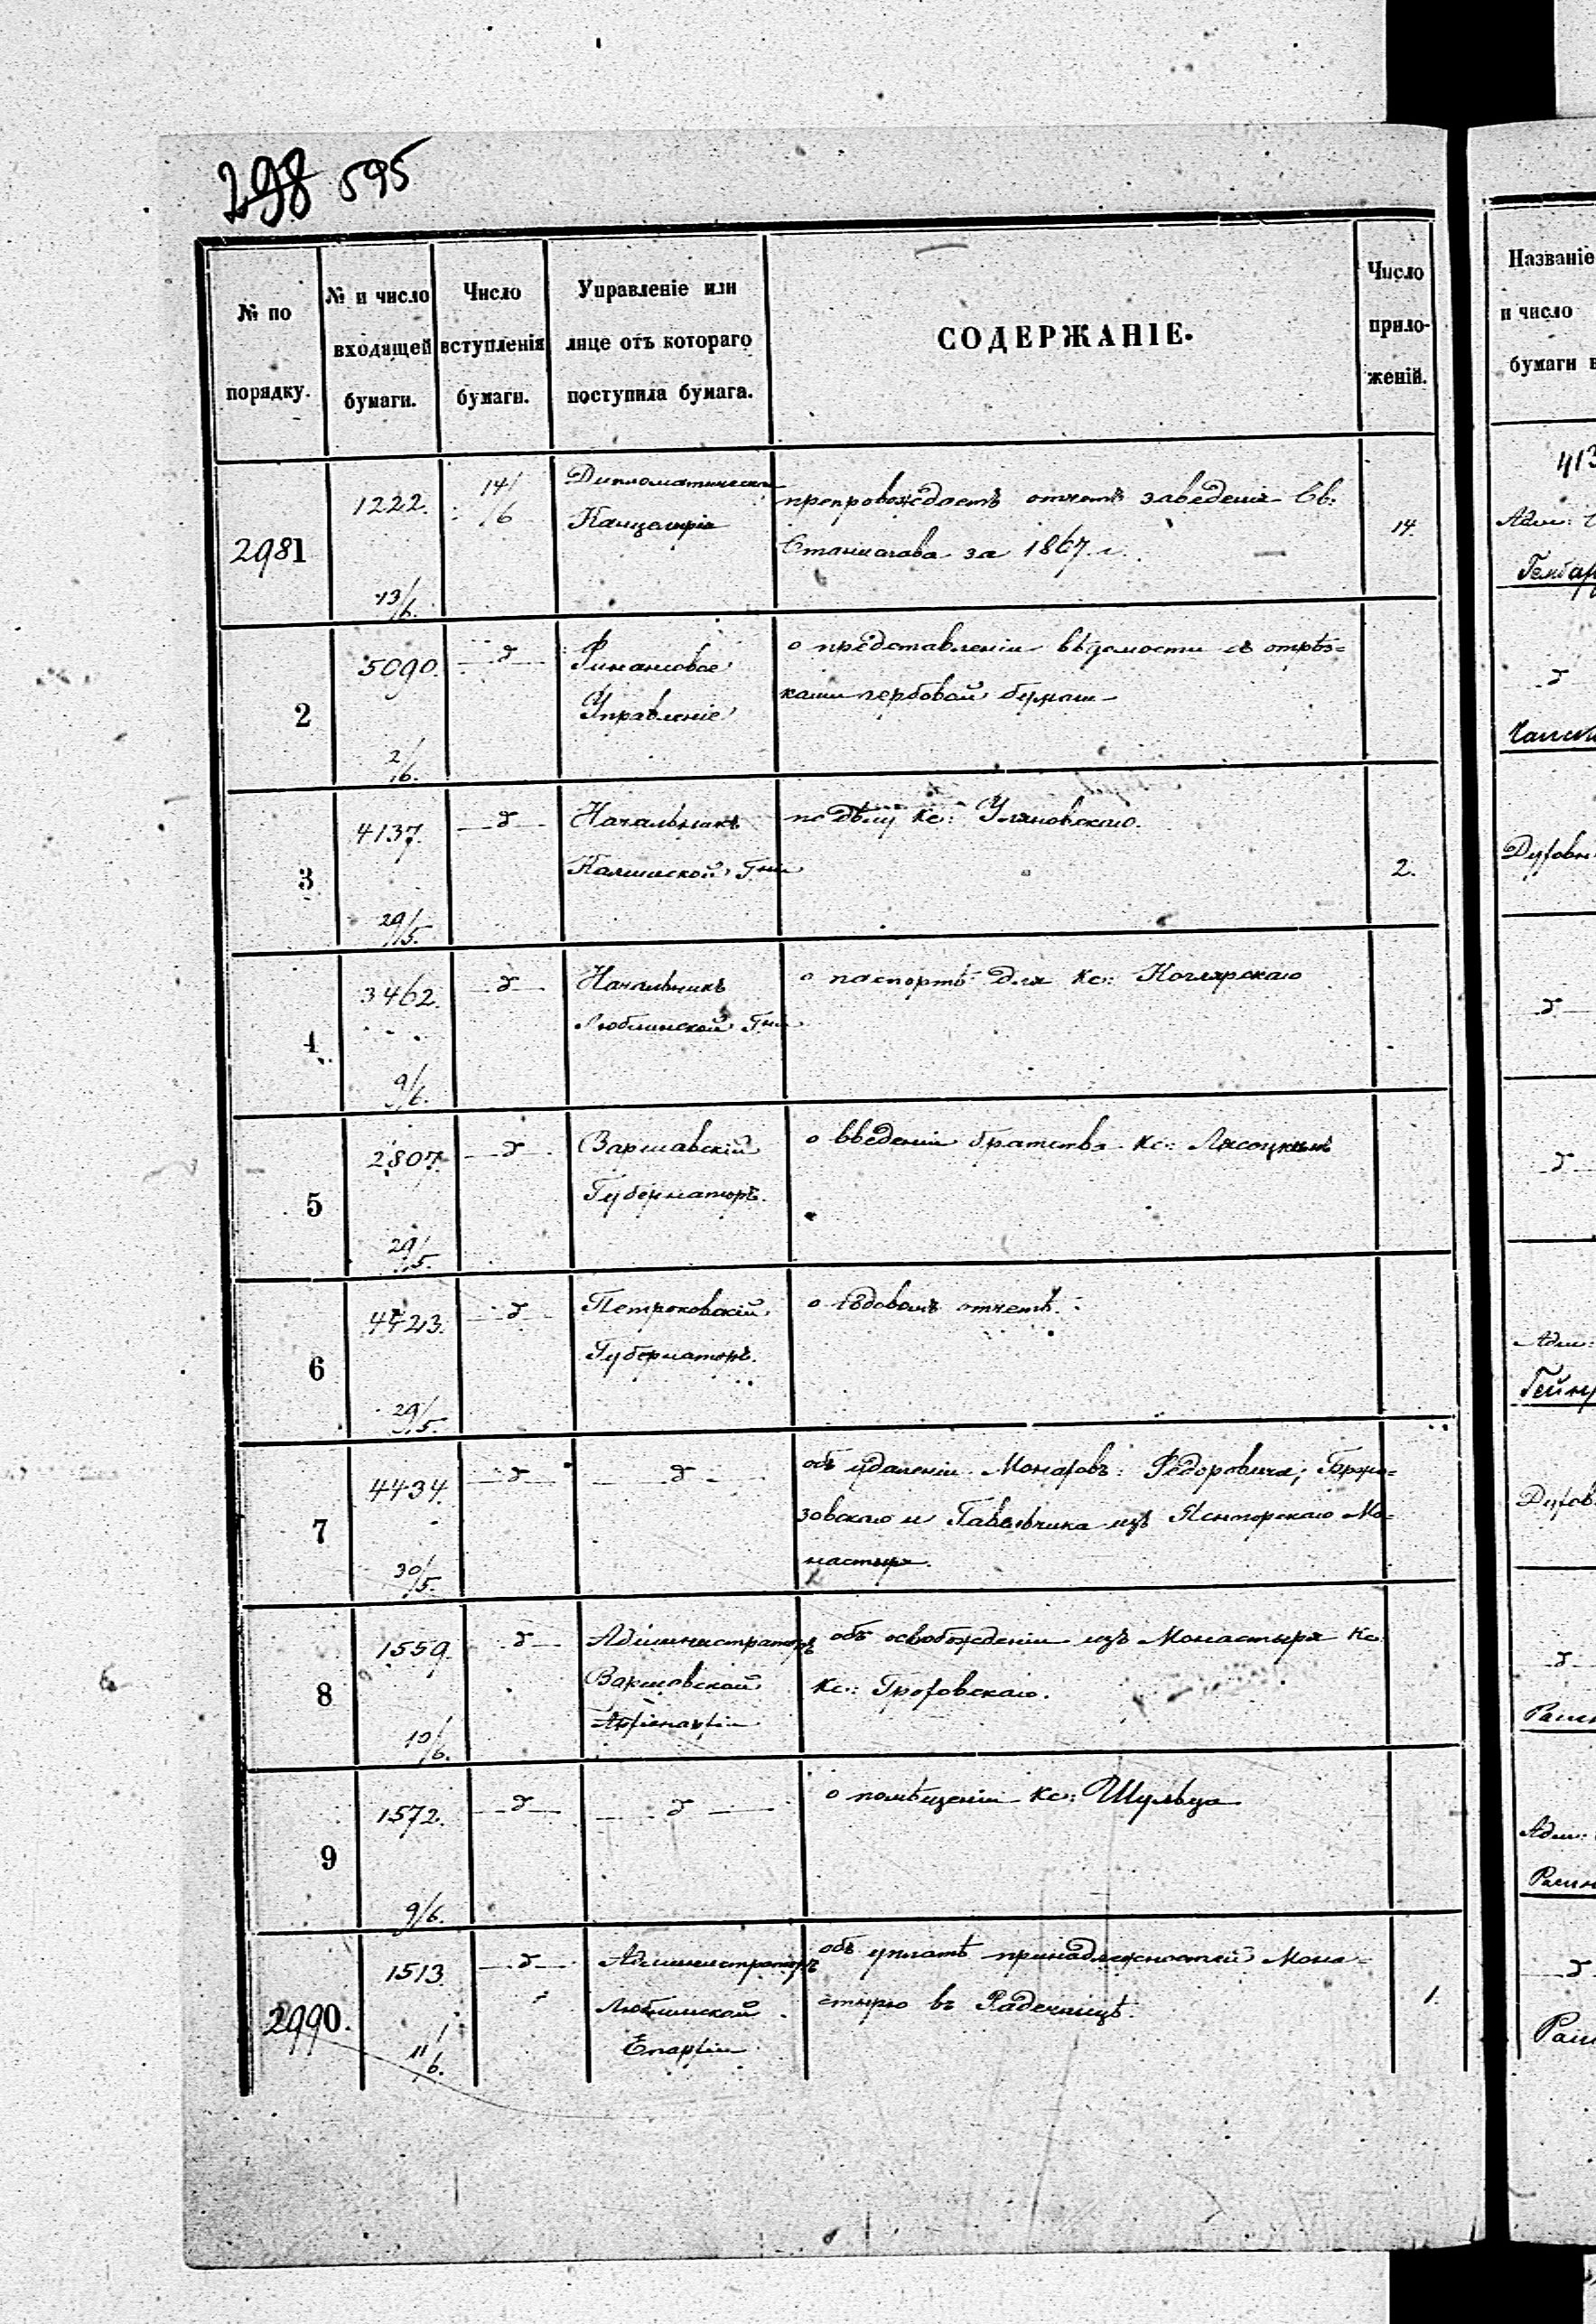 298 595
№ по порядку.
№ и число входящей бумаги.
Число вступленія бумаги.
Управленіе или лице отъ котораго поступила бумага.
СОДЕРЖАНІЕ.
Число прило- женій.
2981
1222.
13/6.
14/6
Дипломатическая
Канцелярія
препровождаетъ отчетъ заведенія Св:
Станислава за 1867. г.
14.
2
5090.
2/6.
д
Финансовое
Управленіе
о представленіи вѣдомости съ отрѣз=
ками гербовой бумаги
3
4137.
29/5.
д
Начальникъ
Калишской Гни
по дѣлу Кс: Уляновскаго.
2.
4
3462.
9/6.
д
Начальникъ
Люблинской Гни
о паспортѣ для Кс: Коглярскаго
5
2807.
29/5.
д
Варшавскій
Губернаторъ.
о введеніи братства Кс: Лясоцкимъ
6
4423.
29/5.
д
Петроковскій
Губернаторъ.
о годовомъ отчетѣ.
7
4434.
30/5.
д
д
объ удаленіи Монаховъ: Федоровича,
зовскаго и Гавельчика изъ Ясногорскаго Мо=
настыря.
8
1559.
10/6.
д
Администраторъ
Варшавской
Архіепархіи
объ освобожденіи изъ Монастыря Кс
Кс: Гроховскаго.
9
1572.
9/6.
д
д
о помѣщеніи Кс: Шульца
2990.
1513
11/6.
д
Администраторъ
Люблинской
Епархіи
объ уплатѣ принадлежностей Мона=
стырю въ Радечницѣ.
1.
Названіе
и число
бумаги
413
Адм:
д
Духовн
д
д
Адм:
Духов
д
Адм:
д